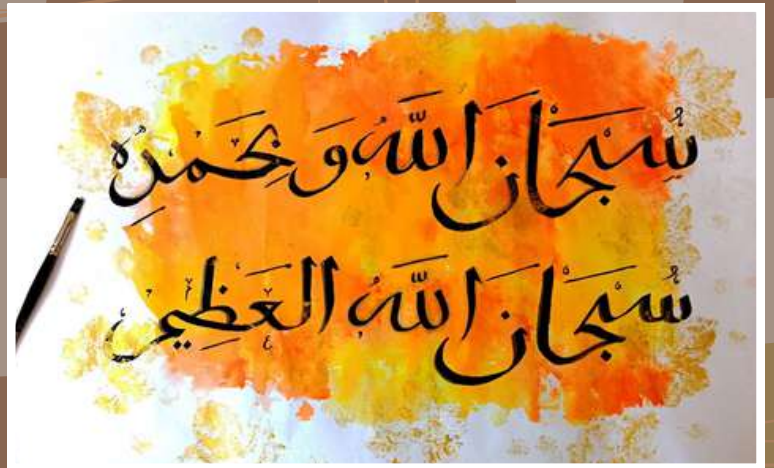 سُبْحَانَ اللّٰهِ وَ بِحَمْدِهِ
سُبْحَانَ اللّٰهِ الْعَظِيمِ